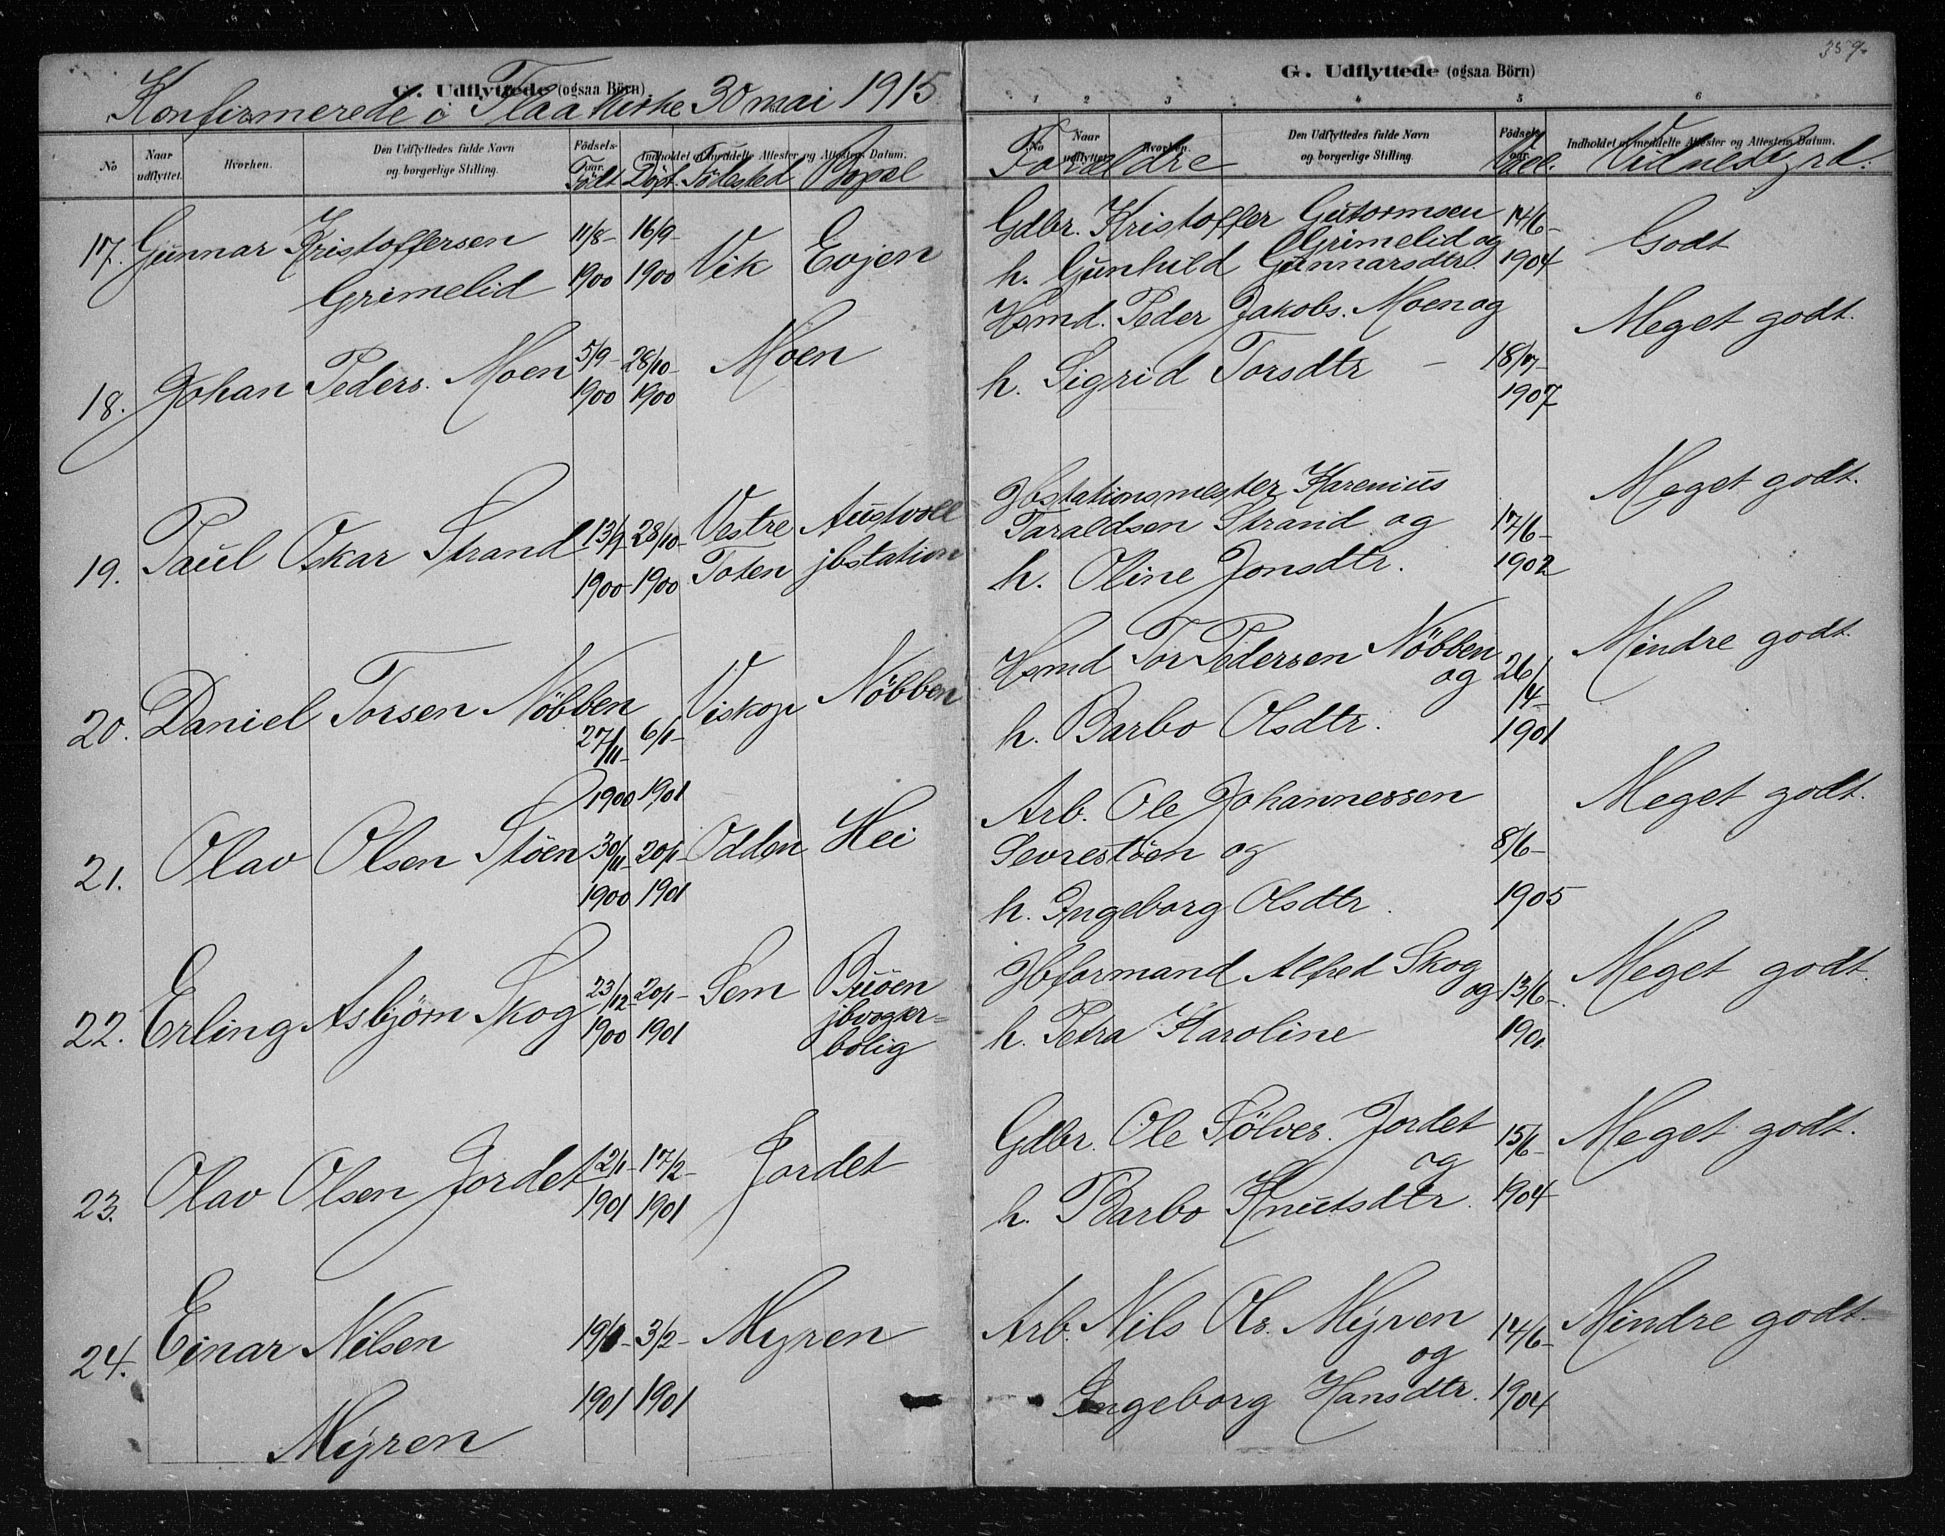 359.
G. Udflyttede (ogsaa Börn)
Konfirmerede i Flaa kirke 30 mai 1915
No Naar udflyttet. Hvorhen. Den Udflyttedes fulde Navn og borgerlige Stilling. Födsels- aar. Indholdet af meddelte Attester og Attestens Datum.
Födt Döpt. Födested Bopæl
17. Gunnar Kristoffersen 11/8- 16/9- Vik Evjen
Grimelid 1900 1900
18. Johan Peders. Moen 5/9- 28/10- Moen
1900 1900
19. Paul Oskar Strand 13/9- 28/10- Vestre Austvoll
1900 1900 Toten jbstation
20. Daniel Torsen Nöbben Viskop Nöbben
27/11- 6/1-
1900 1901
21. Olav Olsen Stöen 30/11- 20/1- Odden Hei
1900 1901
22. Erling Asbjørn Skog 23/12- 20/1- Sem Buöen
1900 1901 jbvogter=
bolig
23. Olav Olsen Jordet 12/1- 17/2- Jordet
1901 1901
24. Einar Nilsen 19/1- 3/2- Myren
1901 1901
Myren
G. Udflyttede (ogsaa Börn)
1 2 3 4 5 6
No Naar udflyttet. Hvorhen. Den Udflyttedes fulde Navn og borgerlige Stilling. Födsels- aar. Indholdet af meddelte Attester og Attestens Datum.
Forældre Vac. Vidnesbyrd.
Gdbr. Kristoffer Gutormsen 14/6- Godt
Grimelid og
h. Gunhild Gunnarsdtr. 1904
Hsmd. Peder Jakobs. Moen og Meget godt.
h. Sigrid Torsdtr - 18/7-
1907
Jbstationsmester Karenius Meget godt.
Taraldsen Strand og 17/6-
h. Oline Jonsdtr. 1902
Hsmd Tor Pedersen Nöbben 26/ Mindre godt.
og 14-
h. Barbo Olsdtr. 1901
Arb. Ole Johannessen Meget godt.
Sevrestöen og 8/6-
h. Ingeborg Olsdtr. 1905
Jbformand Alfred Skog Meget godt.
og 13/6-
h. Petra Karoline 1901
Gdbr. Ole Sölves. Jordet 15/6- Meget godt.
og
h. Barbo Knutsdtr. 1904
Arb. Nils Ols. Myren 14/6- Mindre godt.
og
Ingeborg Hansdtr. 1904